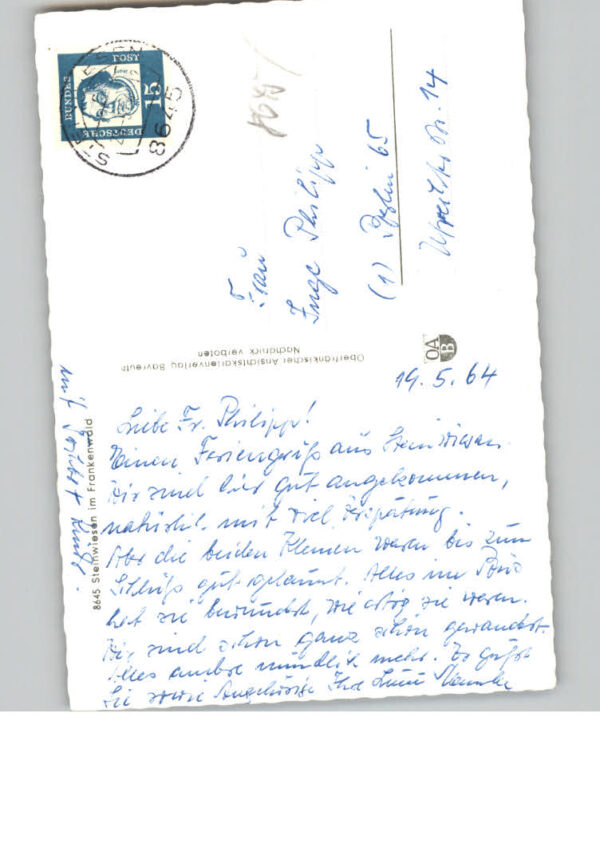 DEUTSCHE
BUNDES
POST
15
8645
8645
Frau
Inge Philipp
(1) Berlin 65
Str. 14
OAB
Oberfränkischer Ansichtskartenverlag Bayreuth
Nachdruck verboten
8645 Steinwiesen im Frankenwald
19.5.64
Liebe Fr. Philipp!
Einen Feriengruß aus Steinwiesen.
Wir sind hier gut angekommen,
natürlich mit viel Verspätung.
Aber die beiden Kleinen waren bis zum
Schluß gut gelaunt. Alles im Bus
hat sie bewundert, wie artig sie waren.
Wir sind schon ganz schön gewandert.
Alles andre mündlich mehr. Es grüßt
Sie sowie Angehörige Ihre
mit